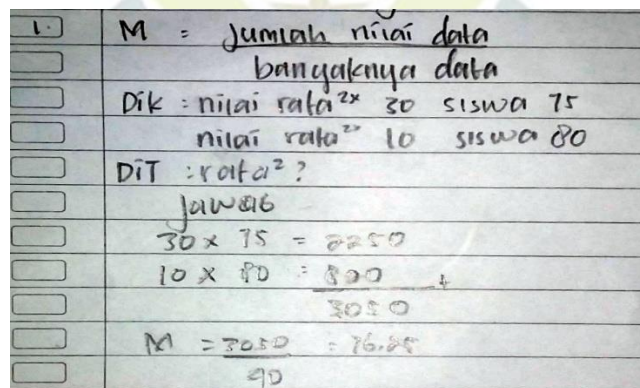 1. M = Jumlah nilai data
banyaknya data
Dik : nilai rata²× 30 siswa 75
nilai rata² 10 siswa 80
DiT : rata² ?
Jawab
30 × 75 = 2250
10 × 80 = 800 +
3050
M = 3050 = 76.25
40